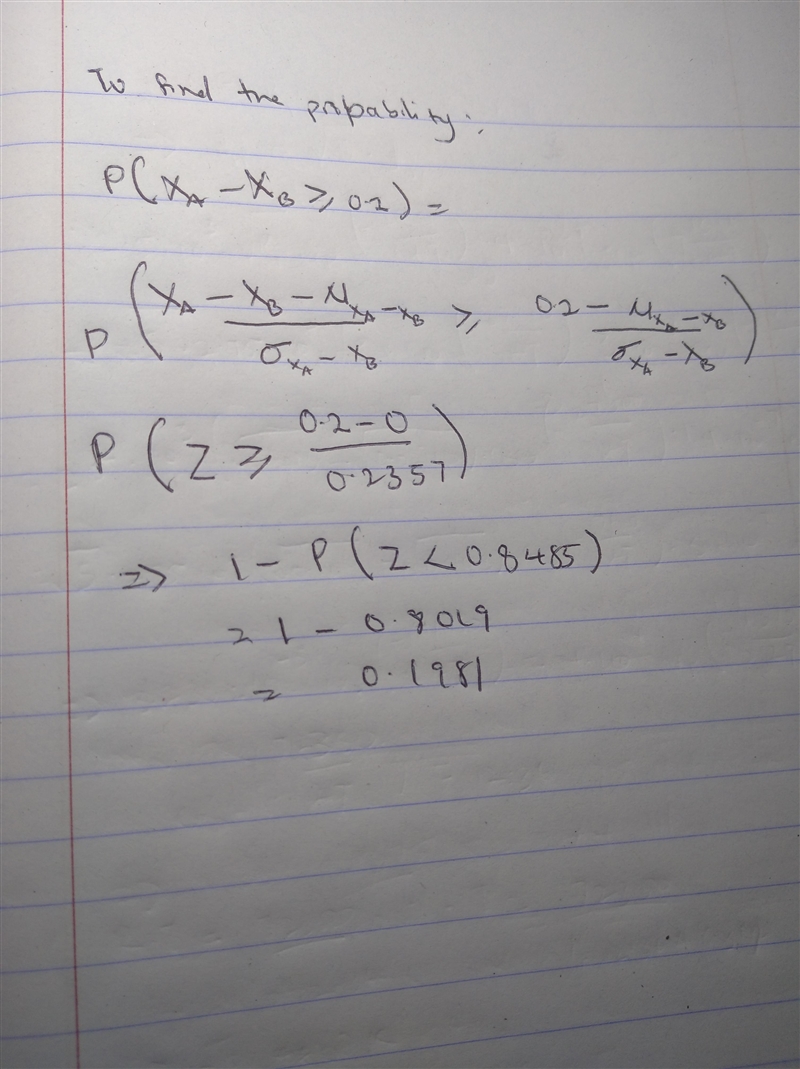 To find the probability:,
P(X_A - X_B ≥ 0.2) =
P( (X_A - X_B - μ_{X_A - X_B}) / (σ_{X_A - X_B}) ≥ (0.2 - μ_{X_A - X_B}) / (σ_{X_A - X_B}) )
P( Z ≥ (0.2 - 0) / 0.2357 )
=> 1 - P(Z < 0.8485)
= 1 - 0.8019
= 0.1981